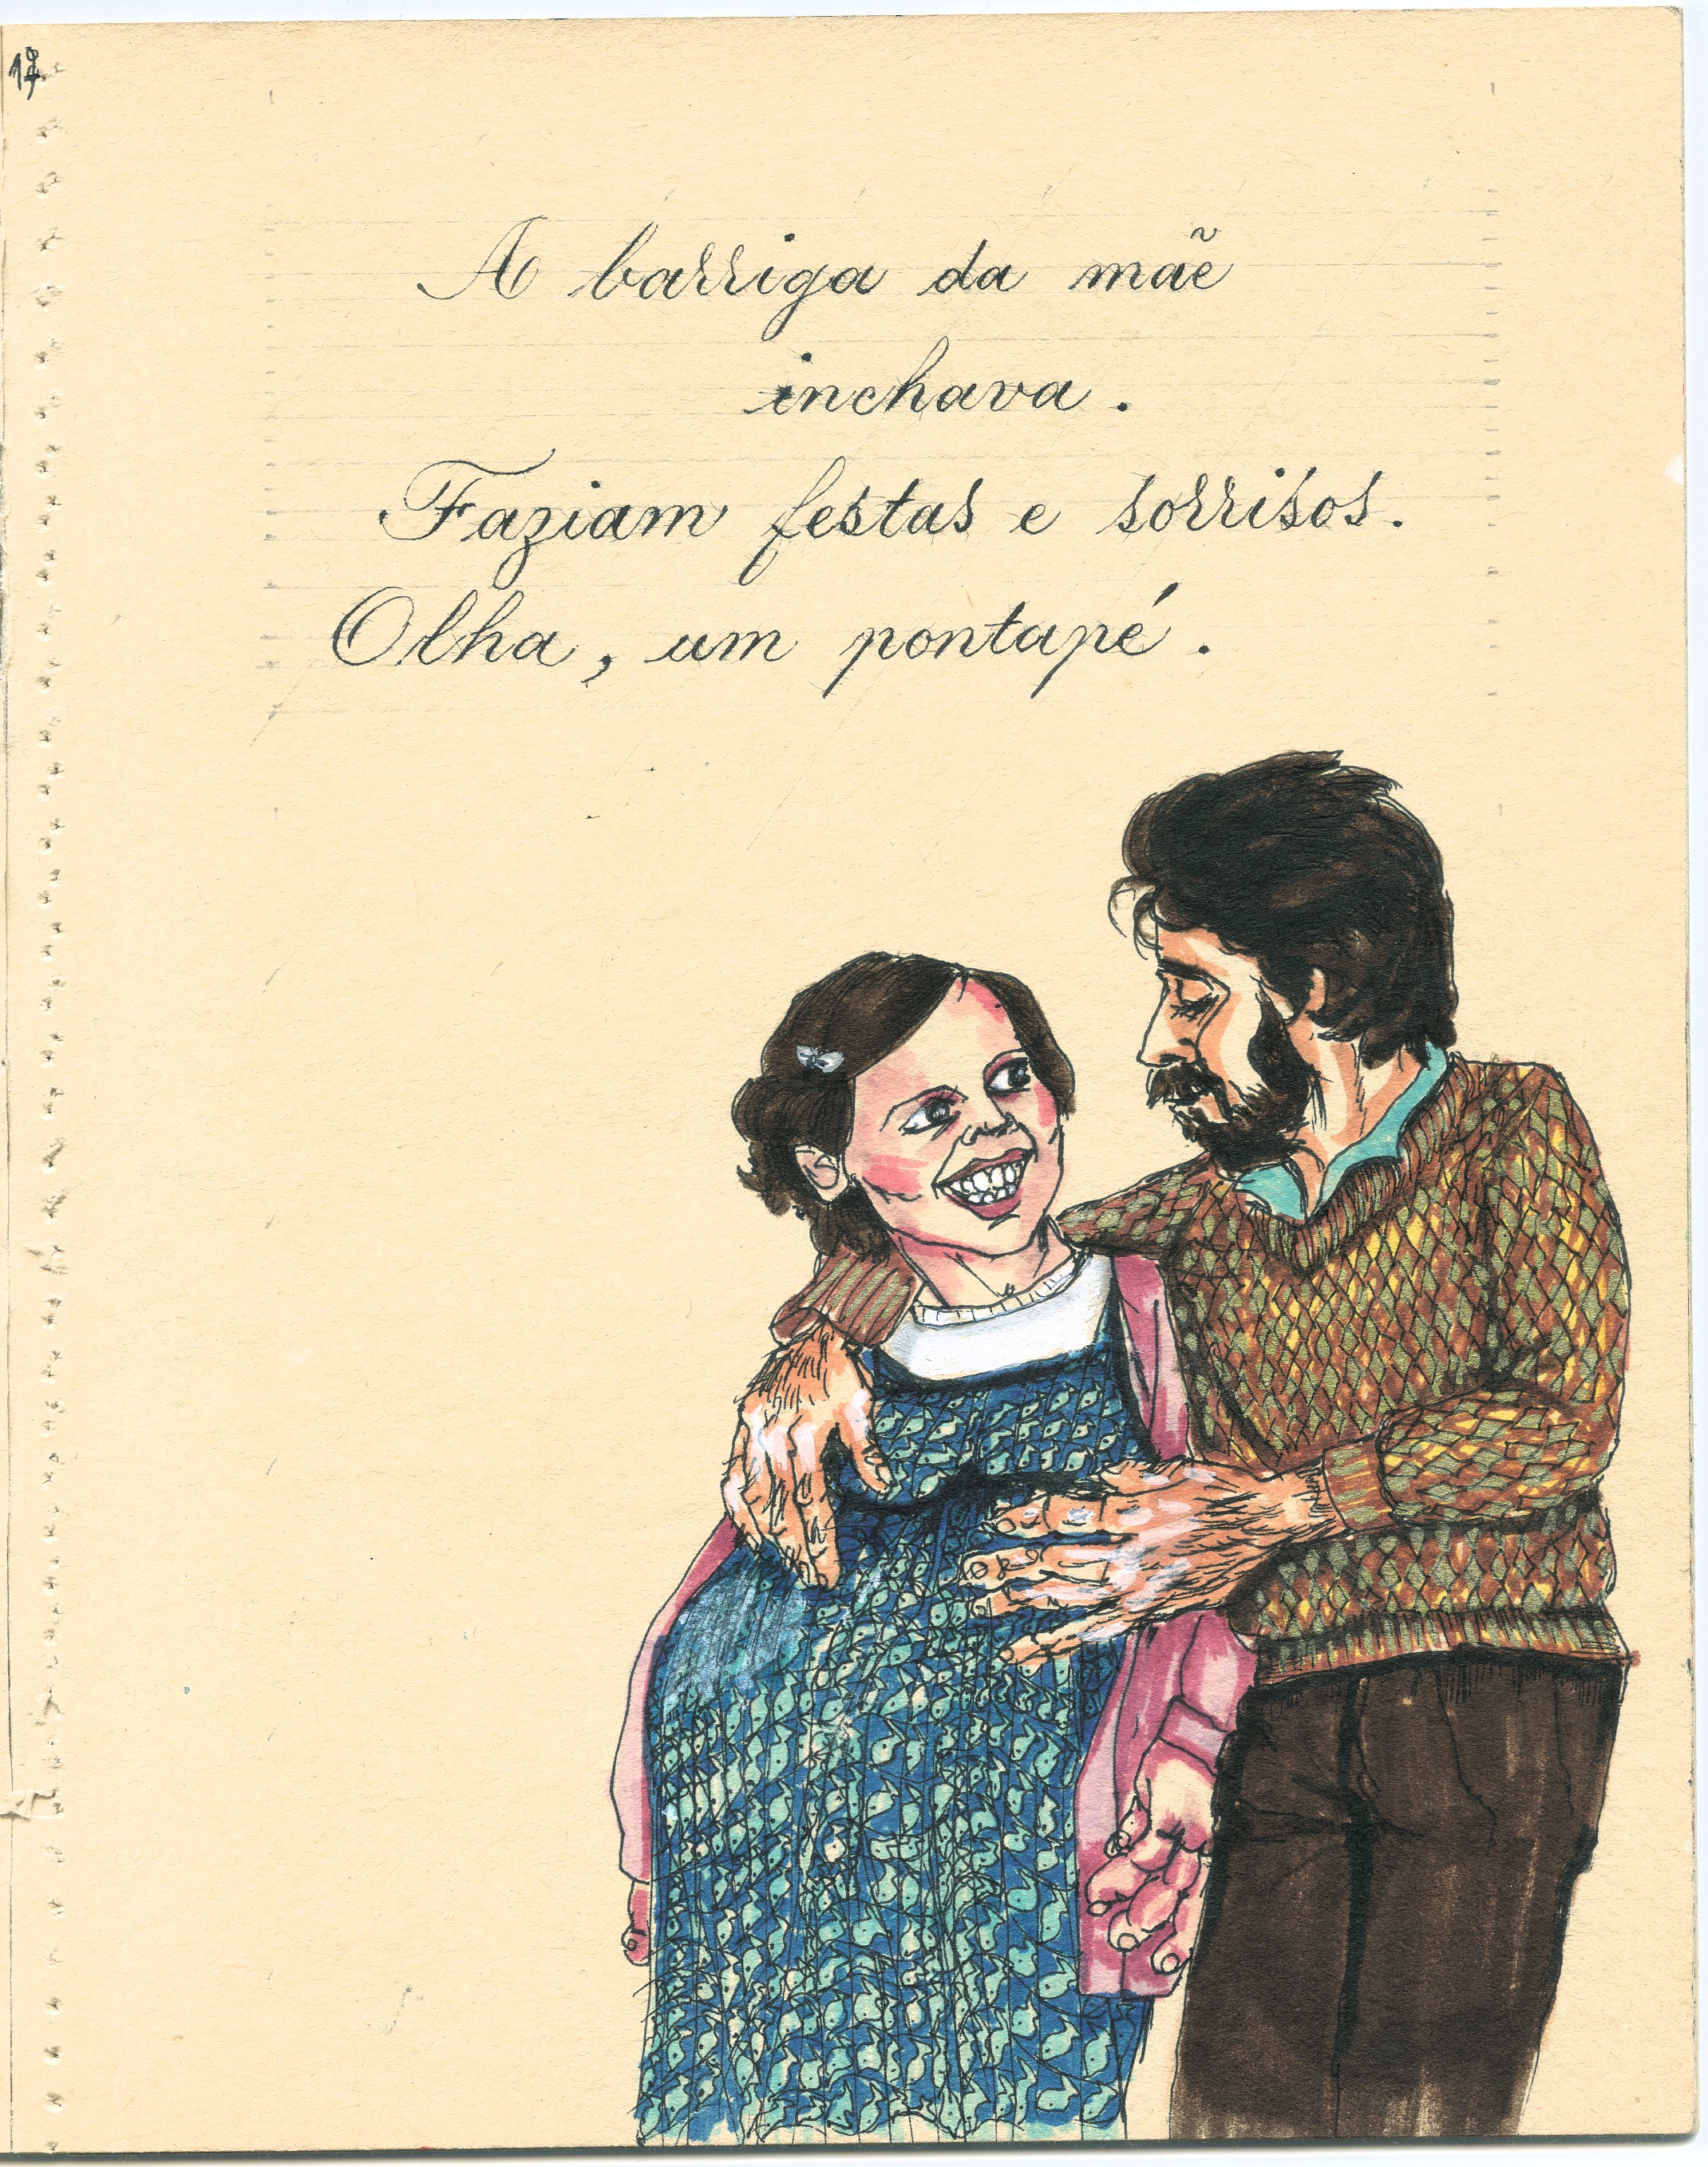 A barriga da mãe
inchava.
Faziam festas e sorrisos.
Olha, um pontapé.